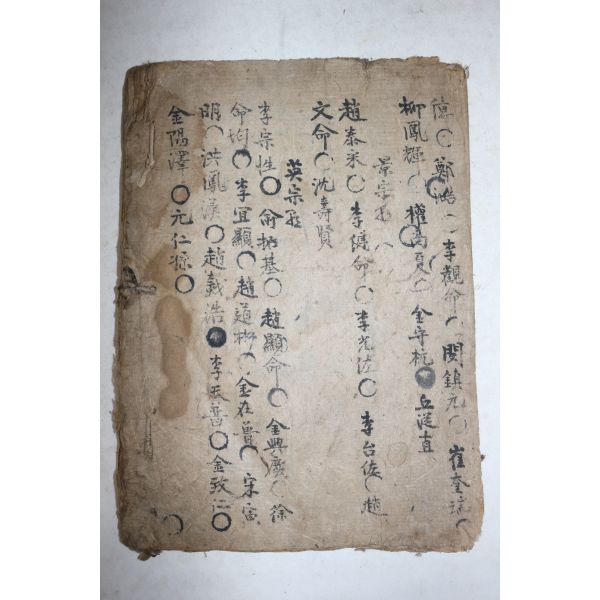 鄭澔○李觀命○閔鎮元○崔奎瑞○
柳鳳輝○權尚夏○金宇杭●丘從直
景宗
趙泰采○李健命○李光佐○李台佐○趙
文命○沈壽賢
英宗
李宗性○俞拓基○趙顯命○金興慶○徐
命均○李宜顯○趙道彬○金在魯○宋寅
明○洪鳳漢○趙載浩●李天普○金致仁○
金陽澤○元仁孫○